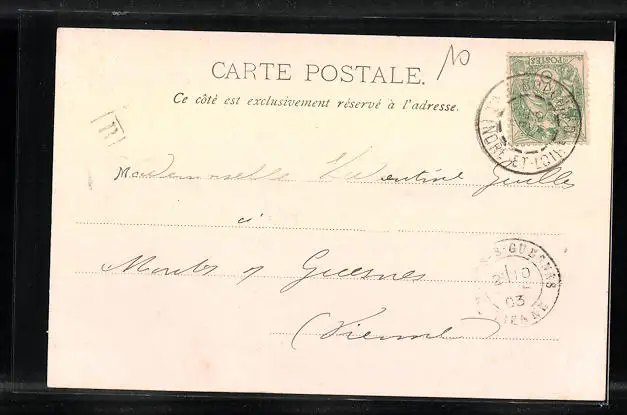 CARTE POSTALE.
Ce côté est exclusivement réservé à l'adresse.
Mademoiselle Valentine Guille
à
Monts s/ Guesnes
(Vienne)
POSTES
INDRE-ET-LOIRE
S-GUESNES
03
VIENNE